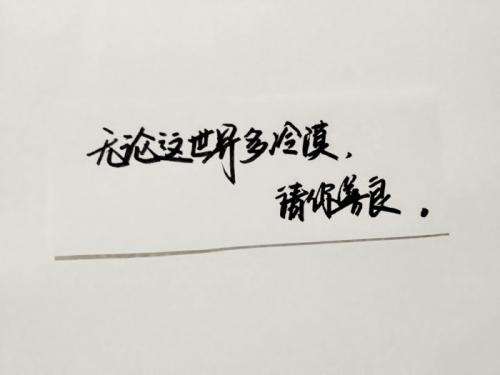 无论这世界多冷漠，
请你善良。